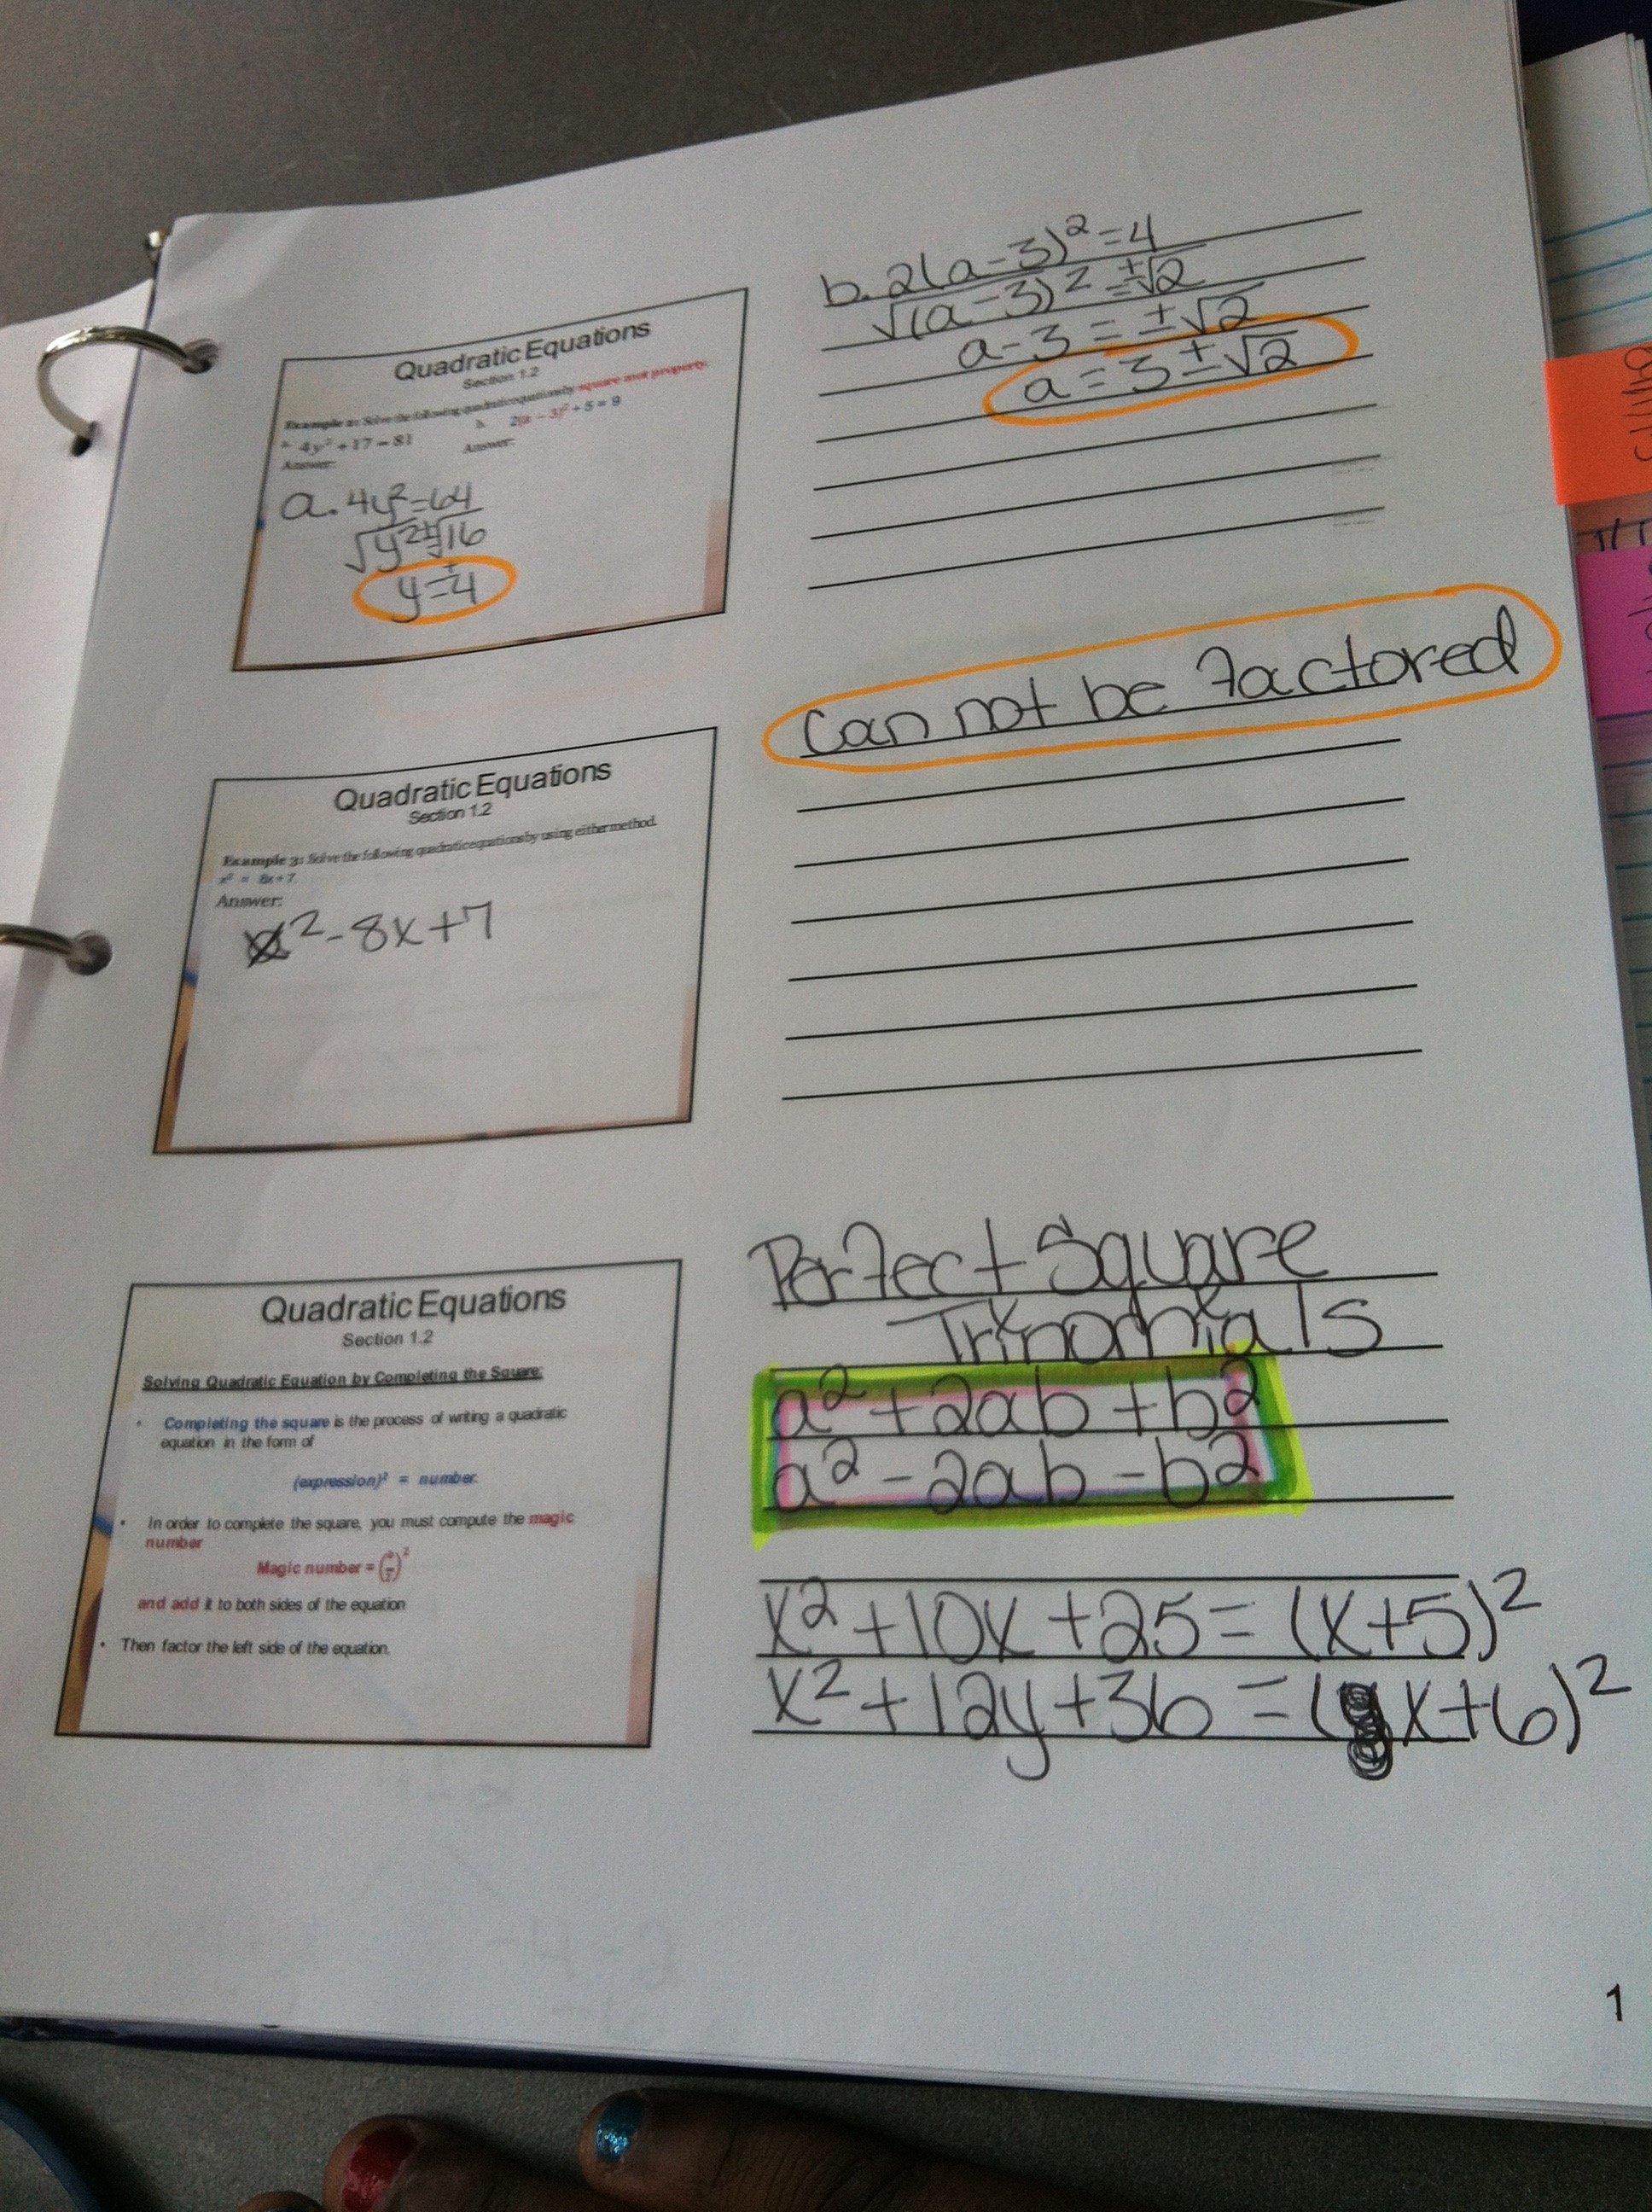 Quadratic Equations
Section 1.2
Example 2: Solve the following quadratic equations by square root property.
a. 4y² + 17 = 81
b. 2(a − 3)² + 5 = 9
Answer:
Answer:
a. 4y²=64
√y²=±√16
y=±4
b. 2(a-3)²=4
√(a-3)²=±√2
a-3=±√2
a=3±√2
Quadratic Equations
Section 1.2
Example 3: Solve the following quadratic equations by using either method.
x² = 8x+7
Answer:
x²-8x+7
Can not be Factored
Quadratic Equations
Section 1.2
Solving Quadratic Equation by Completing the Square:
• Completing the square is the process of writing a quadratic
equation in the form of
(expression)² = number.
• In order to complete the square, you must compute the magic
number
Magic number = (b/2)²
and add it to both sides of the equation
• Then factor the left side of the equation.
Perfect Square
Trinomials
a²+2ab+b²
a²-2ab-b²
x²+10x+25=(x+5)²
x²+12y+36=(x+6)²
1